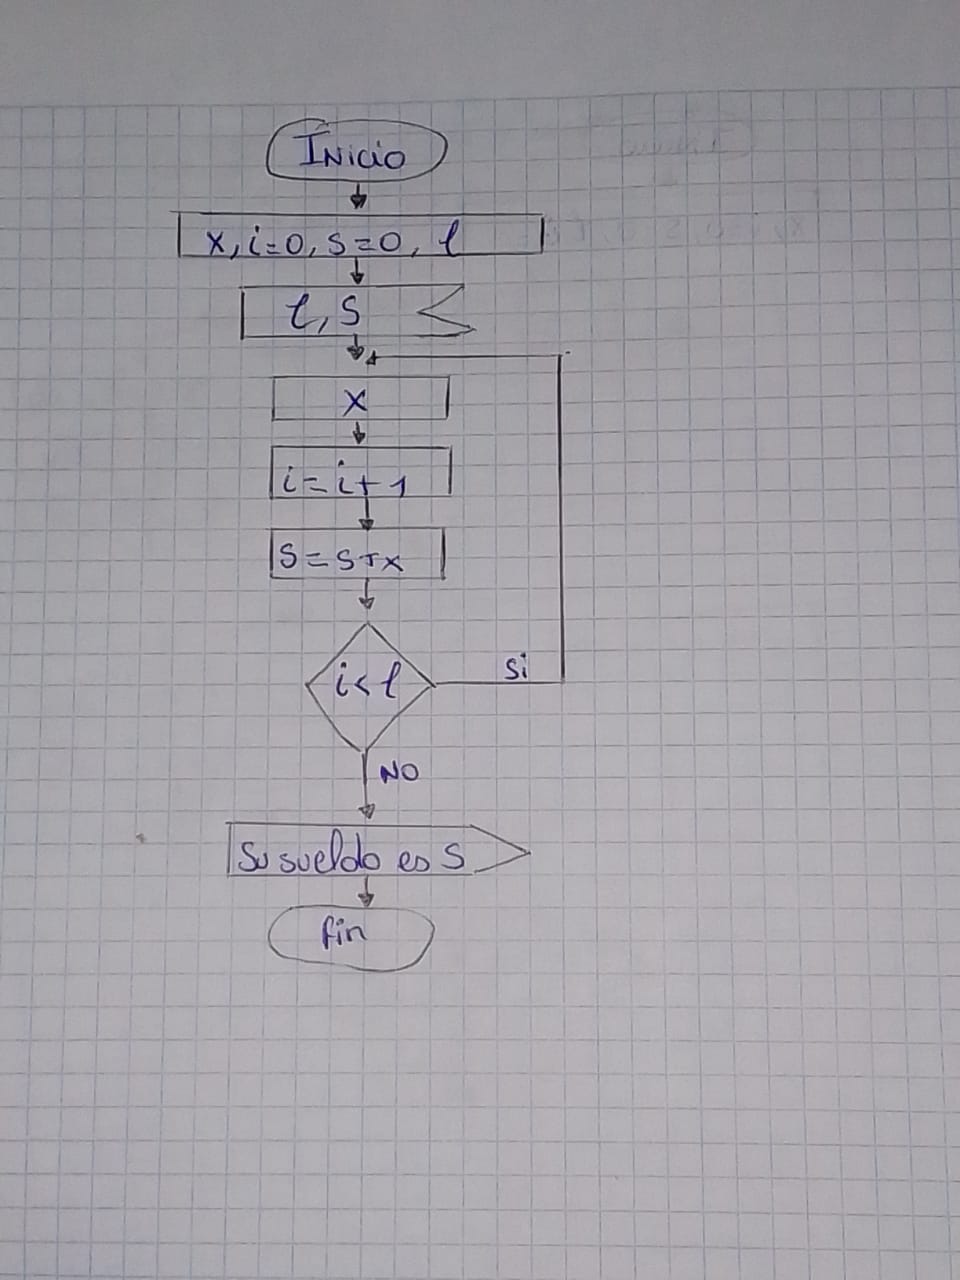 Inicio
x, i=0, s=0, l
l, s
x
i=i+1
s=s+x
i<l
si
NO
Su sueldo es s
fin